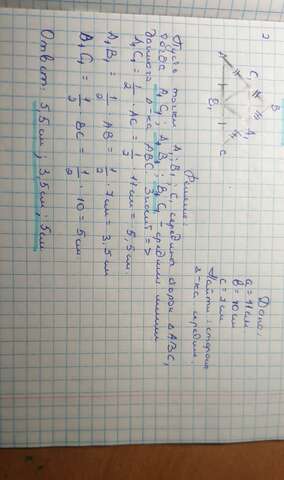 2
B
C₁
A₁
A
B₁
C
Дано:
a = 11 см
b = 10 см
c = 7 см
Найти: стороны
Δ-ка середин.
Решение:
Пусть точки A₁; B₁; C₁ середины сторон ΔABC,
A₁C₁; A₁B₁; B₁C₁ - средние линии
данного Δ-ка ABC. Значит =>
A₁C₁ = 1/2 · AC = 1/2 · 11 см = 5,5 см.
A₁B₁ = 1/2 · AB = 1/2 · 7 см = 3,5 см
A₁C₁ = 1/2 BC = 1/2 · 10 = 5 см
Ответ: 5,5 см; 3,5 см; 5 см